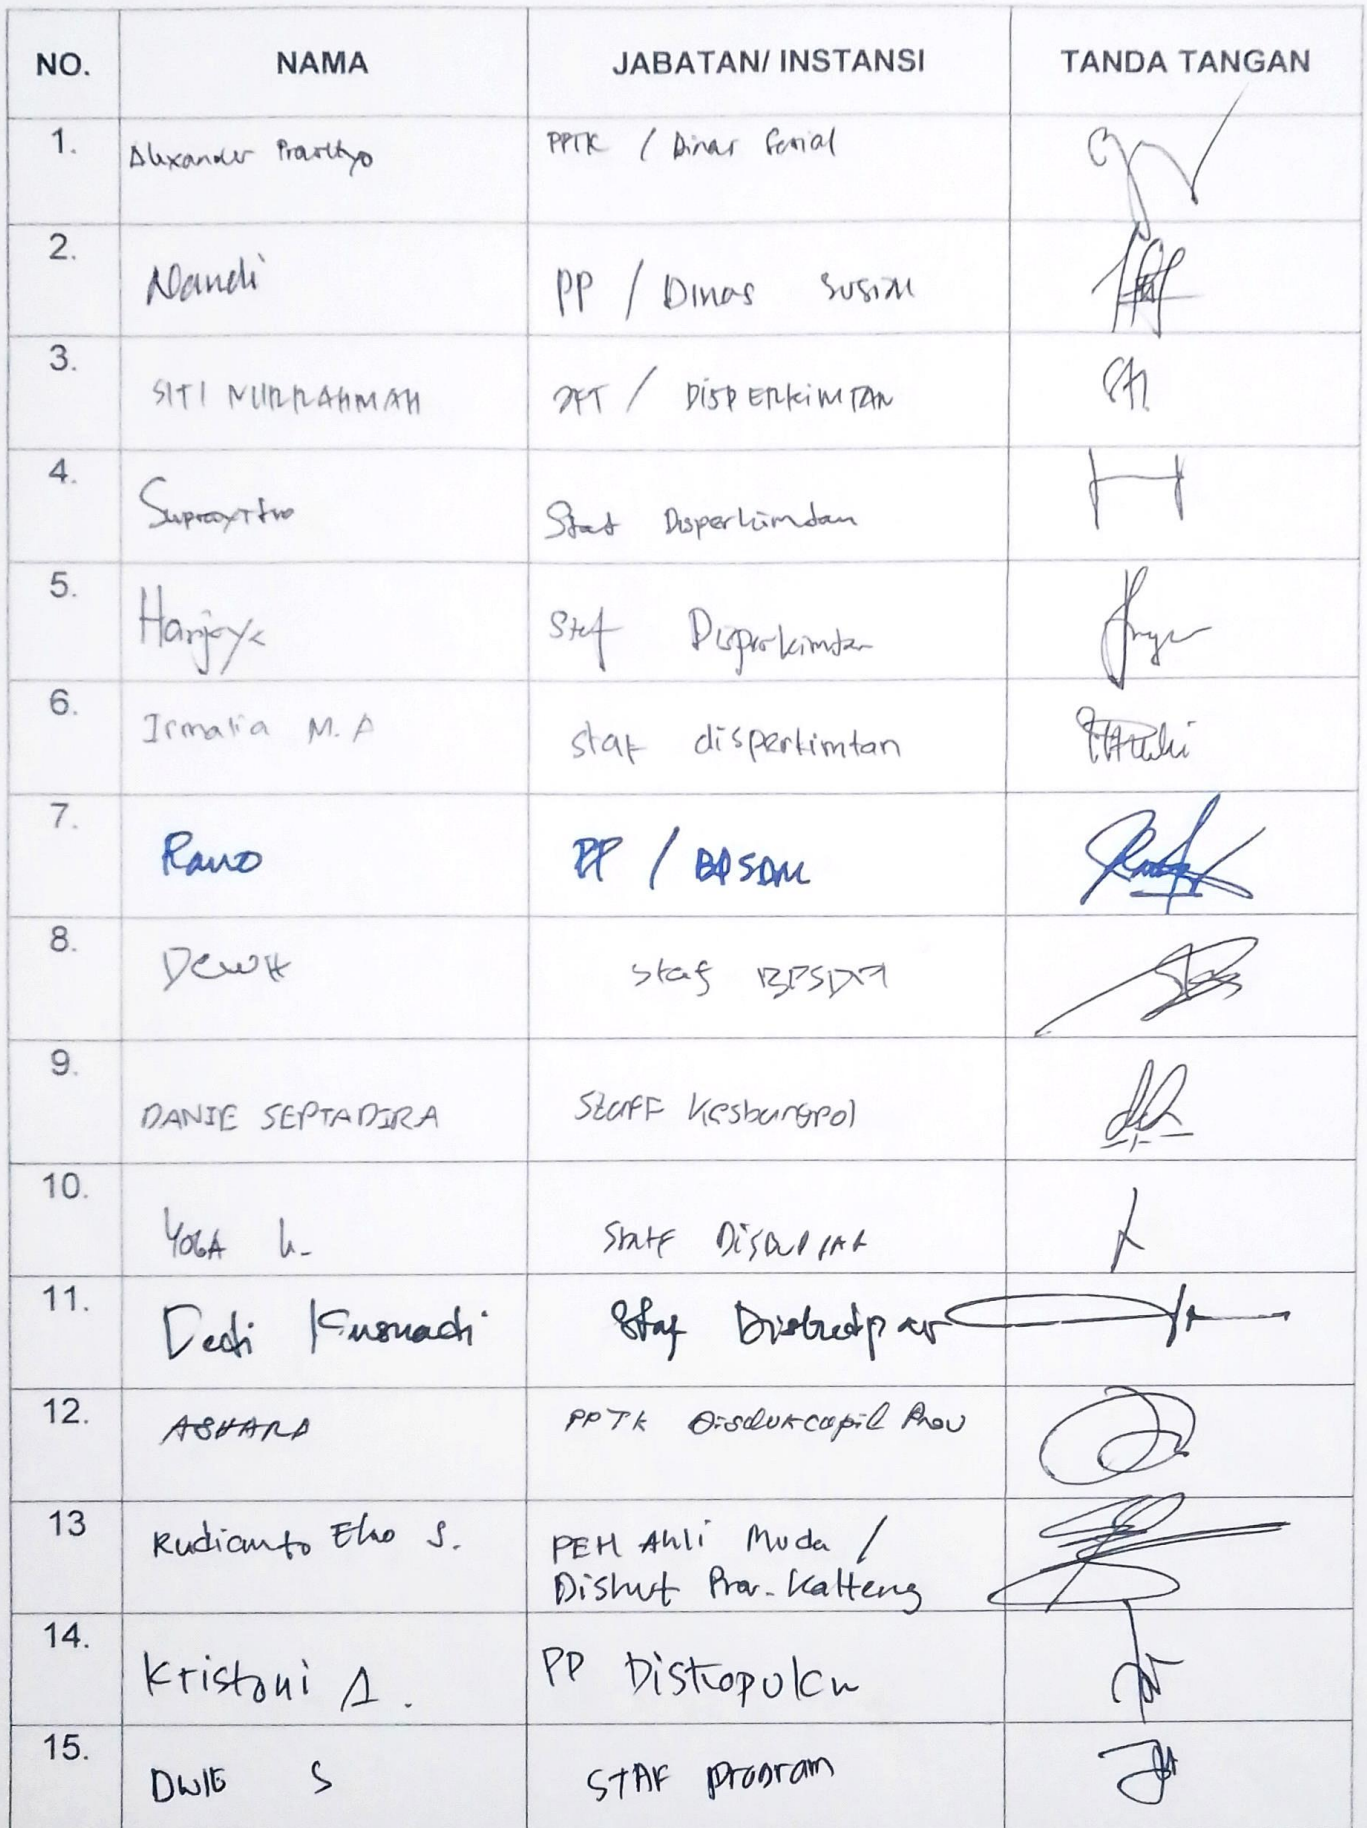 NO. NAMA JABATAN/ INSTANSI TANDA TANGAN
1. Alexander Prasetyo PPTK / Dinas Sosial
2. Nandi PP / Dinas Sosial
3. SITI NURRAHMAH / DISPERKIMTAN
4. Suprayitno Staf Disperkimtan
5. Hanjaya Staf Disperkimtan
6. Irmalia M.A staf disperkimtan
7. Rano PP / BPSDM
8. Dewi staf BPSDM
9. DANIE SEPTADIRA Staff Kesbangpol
10. YOGA K. Staff
11. Dedi Kusnadi Staf Disbudpar
12. ASHARA PPTK Disdukcapil Prov
13 Rudianto Eko S. PEH Ahli Muda /
Dishut Prov. Kalteng
14. Kristoni A. PP Diskopukm
15. DWIE S STAF program